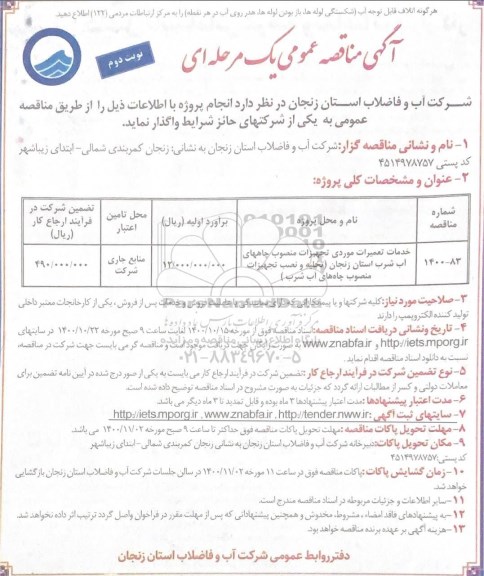 هرگونه اتلاف قابل توجه آب (شکستگی لوله ها، باز بودن لوله ها، هدر روی آب در هر نقطه) را به مرکز ارتباطات مردمی (۱۲۲) اطلاع دهید
آگهی مناقصه عمومی یک مرحله ای
نوبت دوم
شرکت آب و فاضلاب استان زنجان در نظر دارد انجام پروژه با اطلاعات ذیل را از طریق مناقصه
عمومی به یکی از شرکتهای حائز شرایط واگذار نماید.
۱- نام و نشانی مناقصه گزار: شرکت آب و فاضلاب استان زنجان به نشانی: زنجان کمربندی شمالی- ابتدای زیباشهر
کد پستی ۴۵۱۴۹۷۸۷۵۷
۲- عنوان و مشخصات کلی پروژه:
شماره مناقصه
نام و محل پروژه
برآورد اولیه (ریال)
محل تامین اعتبار
تضمین شرکت در فرآیند ارجاع کار (ریال)
۱۴۰۰-۸۳
خدمات تعمیرات موردی تجهیزات منصوب چاههای آب شرب استان زنجان (تخلیه و نصب تجهیزات منصوب چاه‌های آب شرب)
۱۲/۰۰۰/۰۰۰/۰۰۰
منابع جاری شرکت
۴۹۰/۰۰۰/۰۰۰
۳- صلاحیت مورد نیاز: کلیه شرکتها و یا پیمانکاران پس از فروش، یکی از کارخانجات معتبر داخلی
تولید کننده الکتروپمپ را دارند
۴- تاریخ ونشانی دریافت اسناد مناقصه: اسناد مناقصه فوق از مورخه ۱۴۰۰/۱۰/۱۵ لغایت ساعت ۹ صبح مورخه ۱۴۰۰/۱۰/۲۲ در سایتهای
http://iets.mporg.ir و www.znabfa.ir موجود است و مناقصه گر می بایست جهت شرکت در مناقصه،
نسبت به دانلود اسناد مناقصه اقدام نماید.
۵- نوع تضمین شرکت در فرآیند ارجاع کار: تضمین شرکت در فرآیند ارجاع کار می بایست به یکی از صور درج شده در آیین نامه تضمین برای
معاملات دولتی و کسر از مطالبات ارائه گردد که جزئیات به صورت مشروح در اسناد مناقصه توضیح داده شده است.
۶- مدت اعتبار پیشنهادها: مدت اعتبار پیشنهادها ۳ ماه بوده و قابل تمدید تا ۳ ماه دیگر می باشد.
۷- سایتهای ثبت آگهی: http://iets.mporg.ir , www.znabfa.ir , http://tender.nww.ir
۸- مهلت تحویل پاکات مناقصه: مهلت تحویل پاکات مناقصه فوق حداکثر تا ساعت ۹ صبح مورخه ۱۴۰۰/۱۱/۰۲ می باشد.
۹- مکان تحویل پاکات: دبیرخانه شرکت آب و فاضلاب استان زنجان به نشانی زنجان کمربندی شمالی- ابتدای زیباشهر
کدپستی: ۴۵۱۴۹۷۸۷۵۷
۱۰- زمان گشایش پاکات: پاکات مناقصه فوق در ساعت ۱۱ مورخه ۱۴۰۰/۱۱/۰۲ در سالن جلسات شرکت آب و فاضلاب استان زنجان بازگشایی
خواهد شد.
۱۱- سایر اطلاعات و جزئیات مربوطه در اسناد مناقصه مندرج است.
۱۲- به پیشنهادهای فاقد امضاء، مشروط، مخدوش و همچنین پیشنهاداتی که پس از مهلت مقرر در فراخوان واصل گردد ترتیب اثر داده نخواهد شد.
۱۳- هزینه آگهی بر عهده برنده مناقصه خواهد بود.
دفتر روابط عمومی شرکت آب و فاضلاب استان زنجان
۰۲۱-۸۸۳۴۹۶۷۰-۵